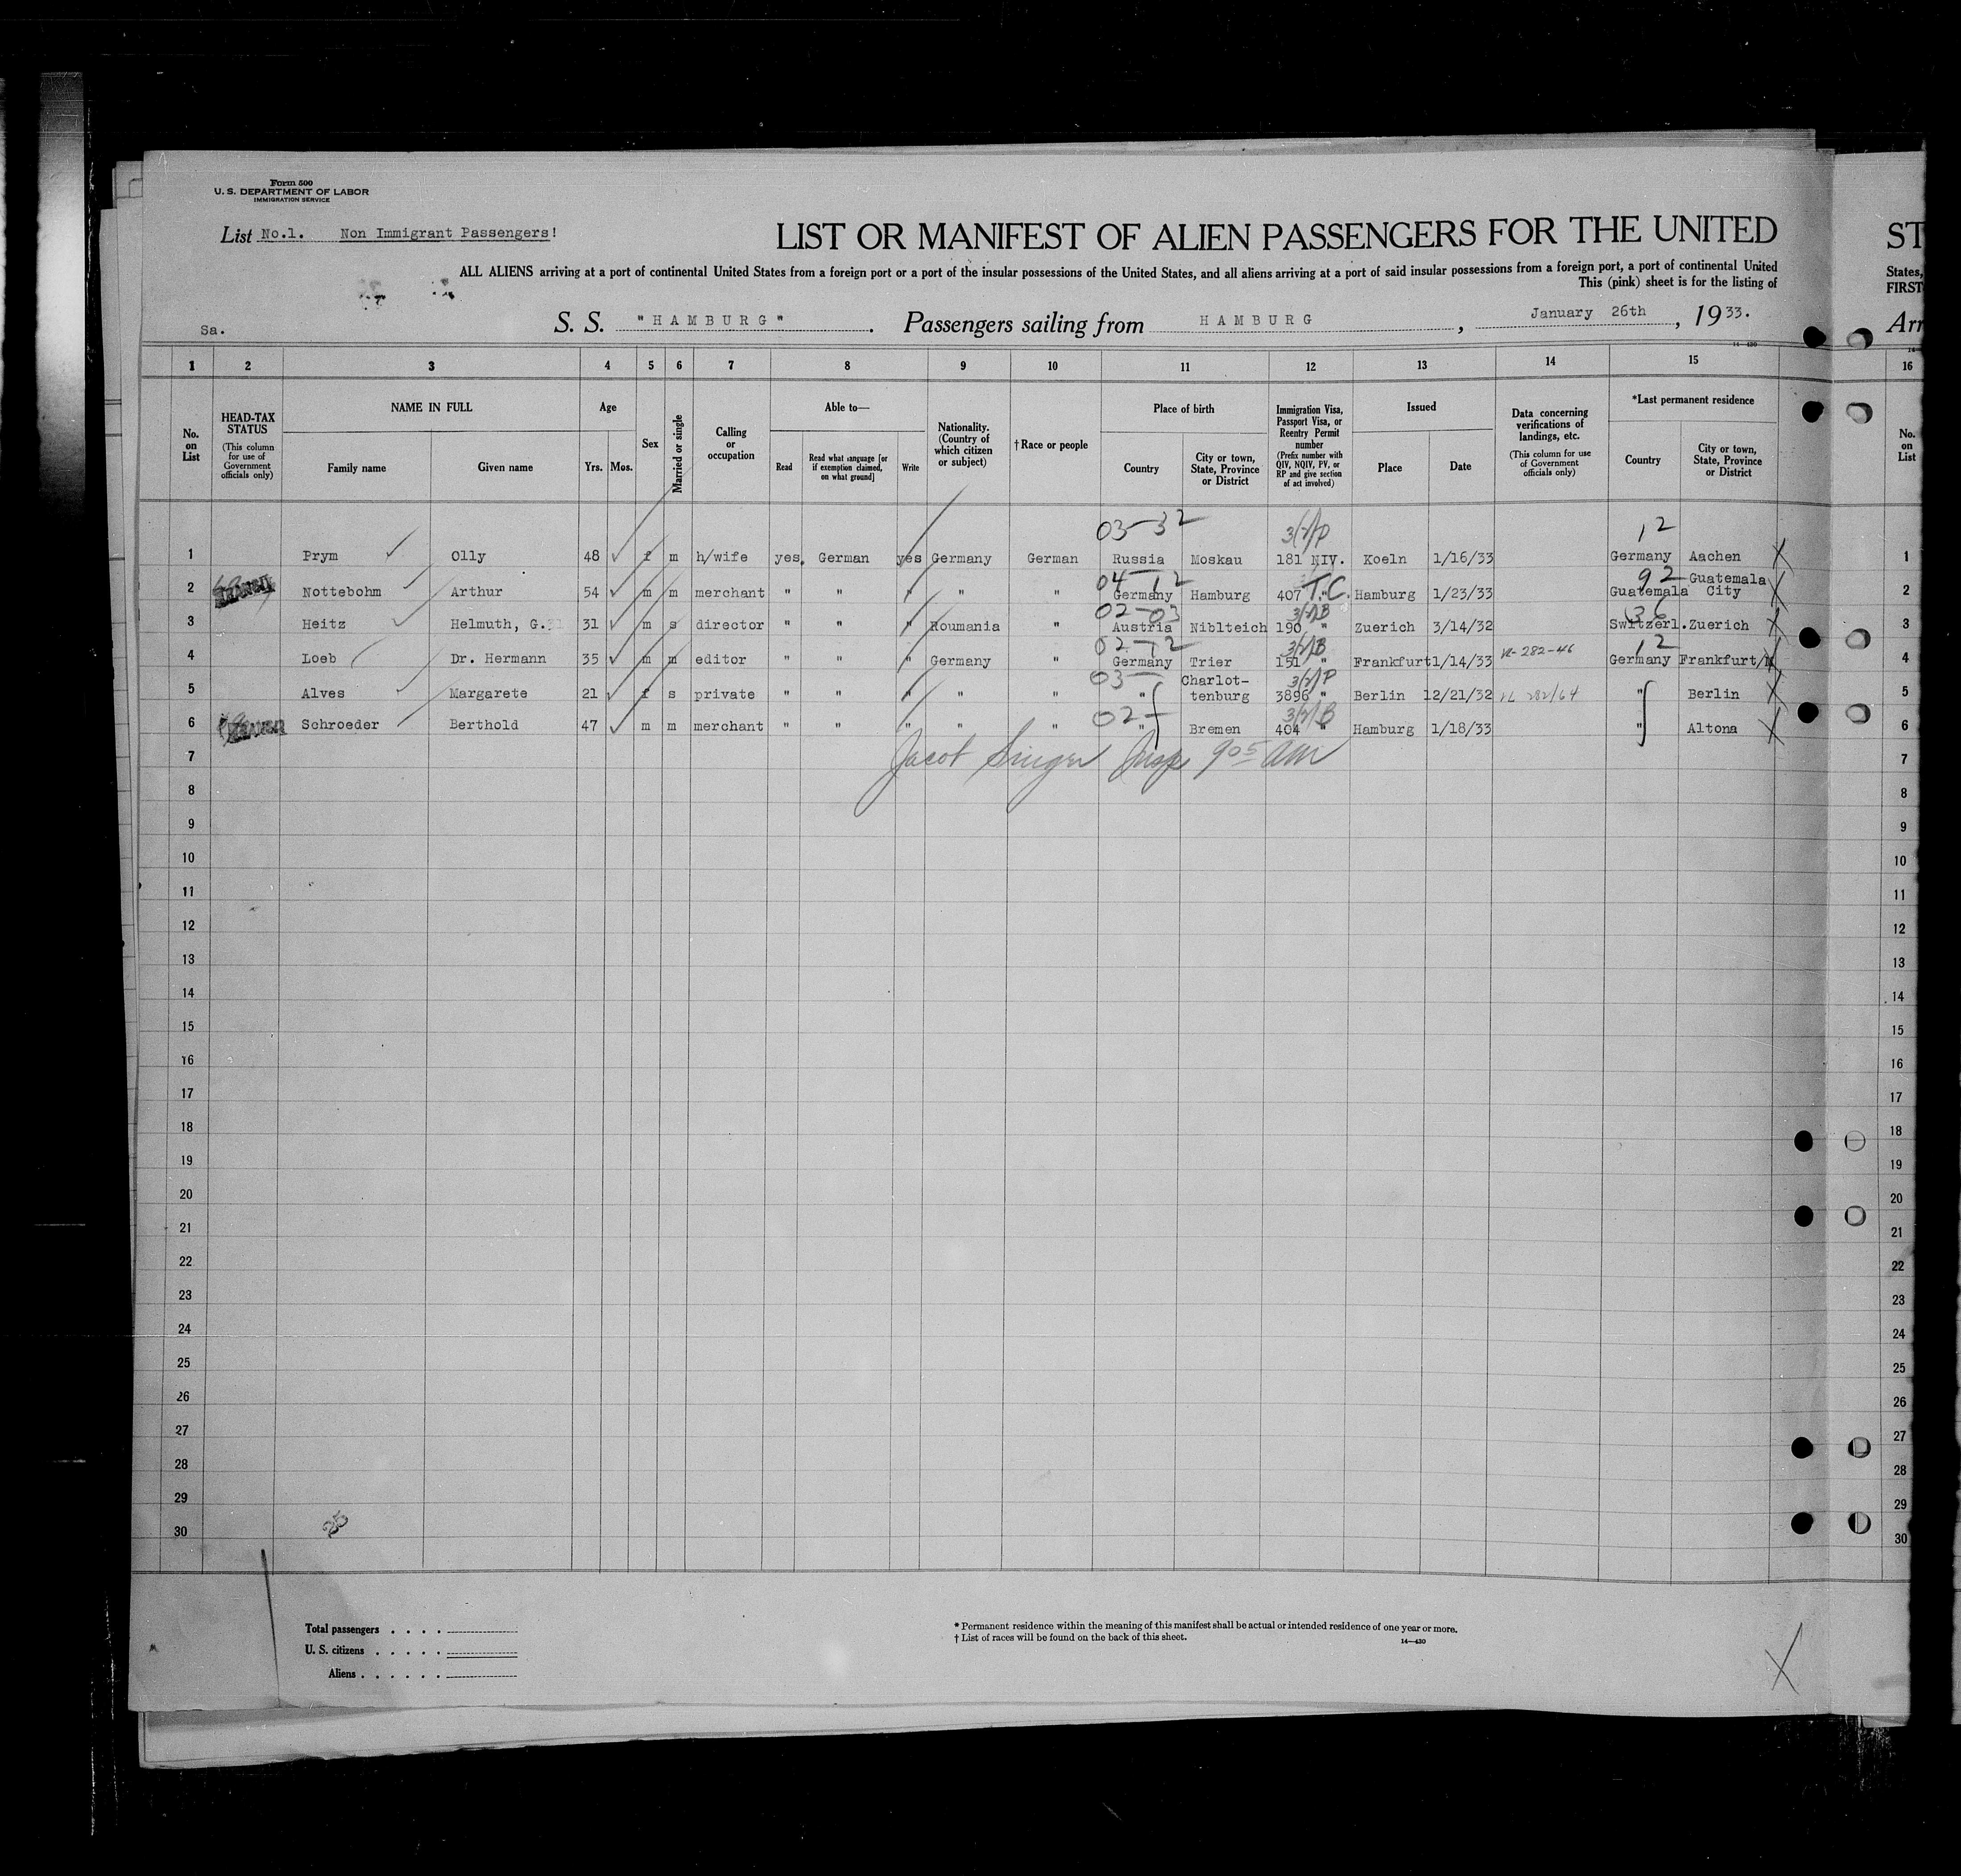 Form 500
U. S. DEPARTMENT OF LABOR
IMMIGRATION SERVICE
List No.1. Non Immigrant Passengers!
LIST OR MANIFEST OF ALIEN PASSENGERS FOR THE UNITED
ST
ALL ALIENS arriving at a port of continental United States from a foreign port or a port of the insular possessions of the United States, and all aliens arriving at a port of said insular possessions from a foreign port, a port of continental United
States,
This (pink) sheet is for the listing of
FIRST
Sa.
S. S. "HAMBURG". Passengers sailing from HAMBURG, January 26th, 1933.
Arr
14—430
1 2 3 4 5 6 7 8 9 10 11 12 13 14 15 16
No. on List
HEAD-TAX STATUS
(This column for use of Government officials only)
NAME IN FULL
Family name
Given name
Age
Yrs. Mos.
Sex
Married or single
Calling or occupation
Able to—
Read
Read what language [or if exemption claimed, on what ground]
Write
Nationality. (Country of which citizen or subject)
†Race or people
Place of birth
Country
City or town, State, Province or District
Immigration Visa, Passport Visa, or Reentry Permit number
(Prefix number with QIV, NQIV, PV, or RP and give section of act involved)
Issued
Place
Date
Data concerning verifications of landings, etc.
(This column for use of Government officials only)
*Last permanent residence
Country
City or town, State, Province or District
No. on List
03-32 3/2/P 12
1 Prym Olly 48 f m h/wife yes, German yes Germany German Russia Moskau 181 NIV. Koeln 1/16/33 Germany Aachen 1
04-12 T.C. 92
2 TRANSIT Nottebohm Arthur 54 m m merchant " " " " " Germany Hamburg 407 " Hamburg 1/23/33 Guatemala Guatemala City 2
02-03 3/2/B 36
3 Heitz Helmuth, G. 31 m s director " " " Roumania " Austria Niblteich 190 " Zuerich 3/14/32 Switzerl. Zuerich 3
02-12 3/2/B 12
4 Loeb Dr. Hermann 35 m m editor " " " Germany " Germany Trier 151 " Frankfurt 1/14/33 Germany Frankfurt/M 4
03- 3/2/P
5 Alves Margarete 21 f s private " " " " " " Charlot-tenburg 3896 " Berlin 12/21/32 " Berlin 5
02- 3/2/B
6 Schroeder Berthold 47 m m merchant " " " " " " Bremen 404 " Hamburg 1/18/33 " Altona 6
7 Jacob Singer Insp 9 05 AM 7
8 8
9 9
10 10
11 11
12 12
13 13
14 14
15 15
16 16
17 17
18 18
19 19
20 20
21 21
22 22
23 23
24 24
25 25
26 26
27 27
28 28
29 29
30 30
Total passengers . . . .
U. S. citizens . . . . .
Aliens . . . . . .
* Permanent residence within the meaning of this manifest shall be actual or intended residence of one year or more.
† List of races will be found on the back of this sheet.
14—430